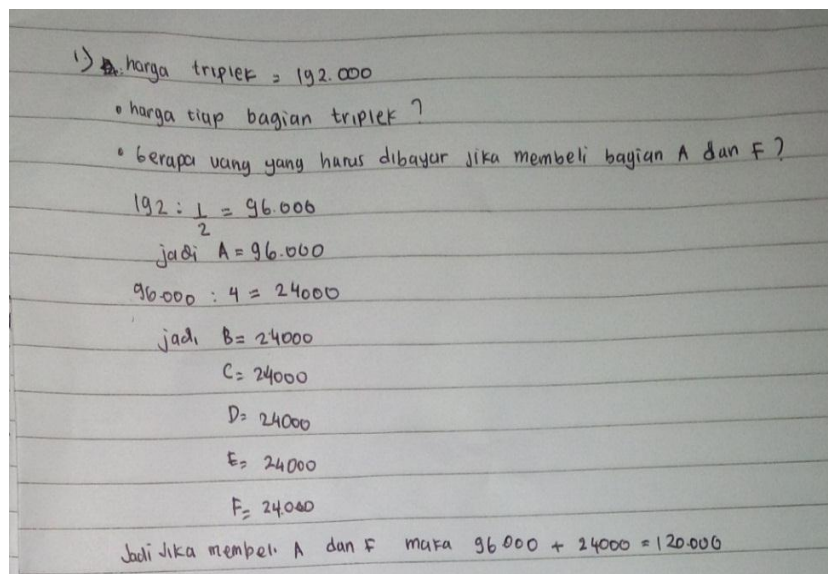 1.) harga triplek = 192.000
• harga tiap bagian triplek ?
• berapa uang yang harus dibayar jika membeli bagian A dan F ?
192 : 1/2 = 96.000
jadi A = 96.000
96.000 : 4 = 24000
jadi B = 24000
C = 24000
D = 24000
E = 24000
F = 24.000
Jadi Jika membeli A dan F maka 96000 + 24000 = 120.000